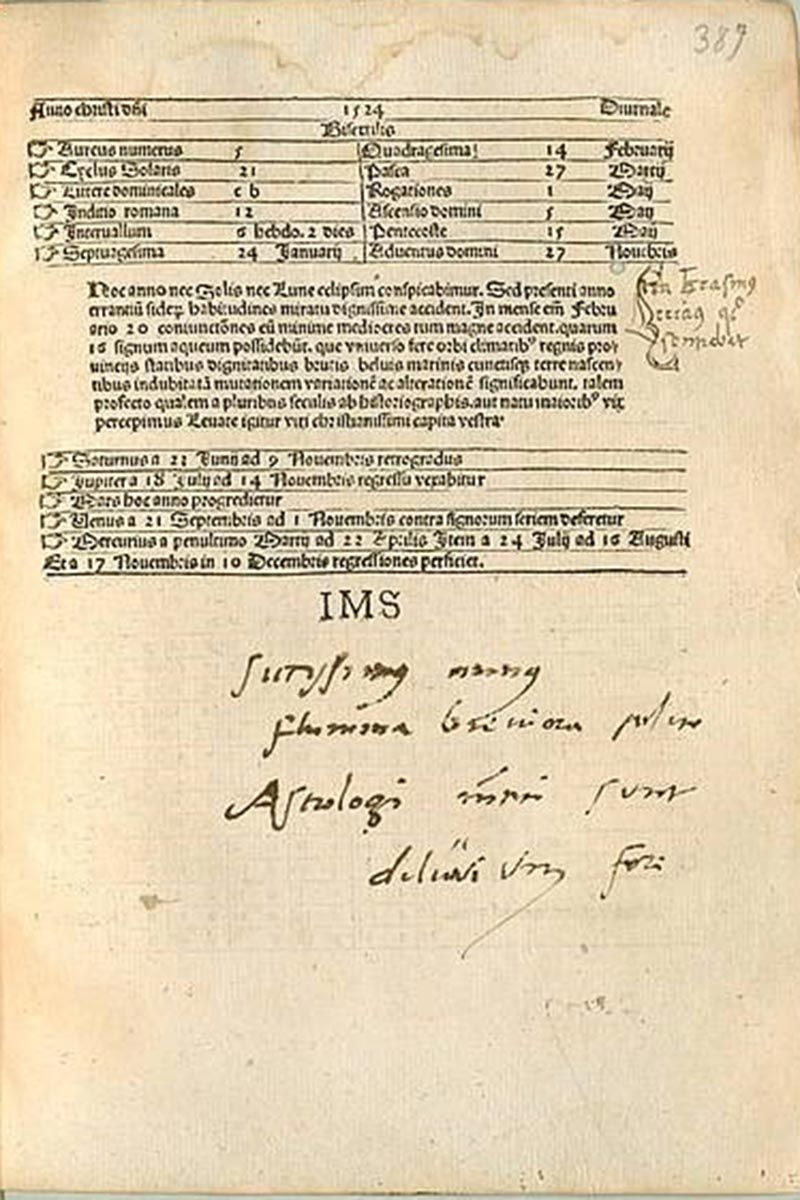 387
Anno christi dñi 1524 Diurnale
Bisextilis
Aureus numerus 5 Quadragesima 14 Februarij
Cyclus Solaris 21 Pasca 27 Martij
Littere dominicales c b Rogationes 1 Maij
Inditio romana 12 Ascensio domini 5 Maij
Interuallum 6 hebdo. 2 dies Pentecoste 15 Maij
Septuagesima 24 Januarij Aduentus domini 27 Nouẽbris
Hoc anno nec Solis nec Lune eclipsim conspicabimur. Sed presenti anno
errantiũ sideꝝ habitudines miratu dignissime accident. In mense em̃ Febru
ario 20 coniunctiões cũ minime mediocres tum magne accident. quarum
16 signum aqueum possidebũt. que vniuerso fere orbi climatibꝰ regnis pro/
uincijs statibus dignitatibus brutis beluis marinis cunctisqꝫ terre nascen/
tibus indubitatã mutationem variationẽ ac alterationẽ significabunt. talem
profecto qualem a pluribus seculis ab historiographis. aut natu maioribꝰ vix
percepimus Leuate igitur viri christianissimi capita vestra
Saturnus a 21 Junij ad 9 Nouembris retrogradus
Jupiter a 18 Julij ad 14 Nouembris regressu vexabitur
Mars hoc anno progredietur
Venus a 21 Septembris ad 1 Nouembris contra signorum seriem deferetur
Mercurius a penultimo Martij ad 22 Aprilis Item a 24 Julij ad 16 Augusti
Et a 17 Nouembris in 10 Decembris regressiones perficiet.
IMS
flumina
Astrologi sunt